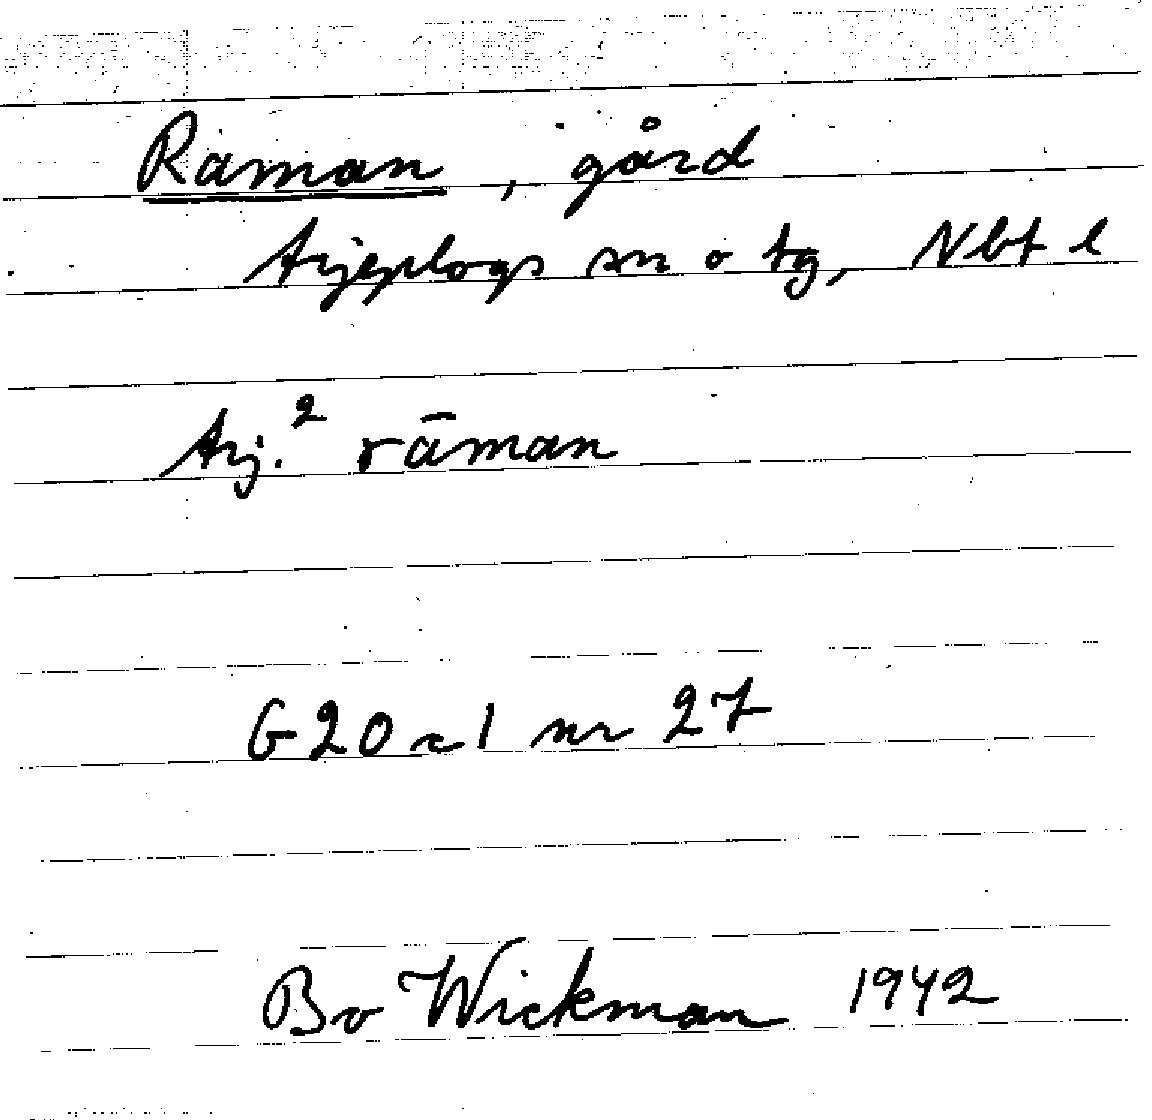 Raman, gård
Arjeplogs sn o tg, Nbt l
Arj.² rāman
G20 c1 nr 27
Bo Wickman 1942